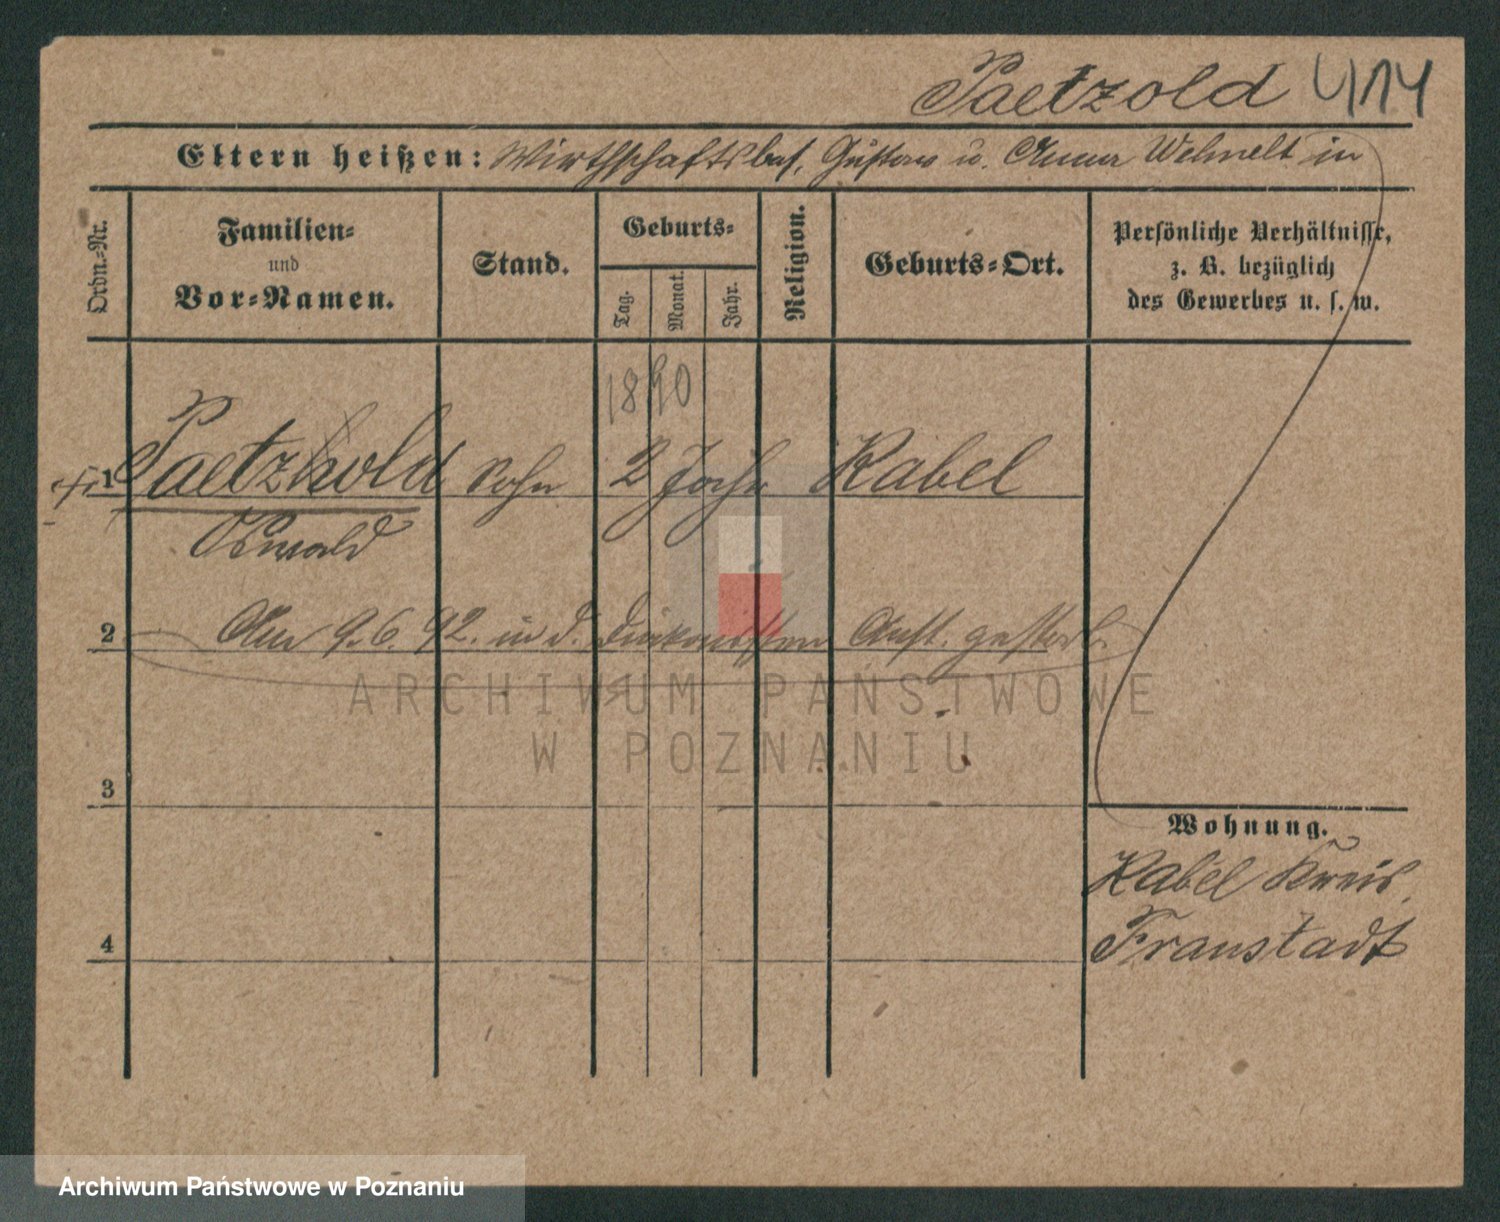 Paetzold 414
Eltern heißen: Wirthschaftsbes. Gustav u. Anna Wehnelt in
Ordn.-Nr.
Familien-
und
Vor-Namen.
Stand.
Geburts-
Tag.
Monat.
Jahr.
Religion.
Geburts-Ort.
Persönliche Verhältnisse,
z. B. bezüglich
des Gewerbes u. s. w.
1890
1 Paetzhold Sohn 2 Jahr Kabel
Oswald
2 Am 9.6.92. in d. Diakonissen Anst. gestorb.
ARCHIWUM PAŃSTWOWE
W POZNANIU
3
Wohnung.
Kabel Kreis
Fraustadt
4
Archiwum Państwowe w Poznaniu